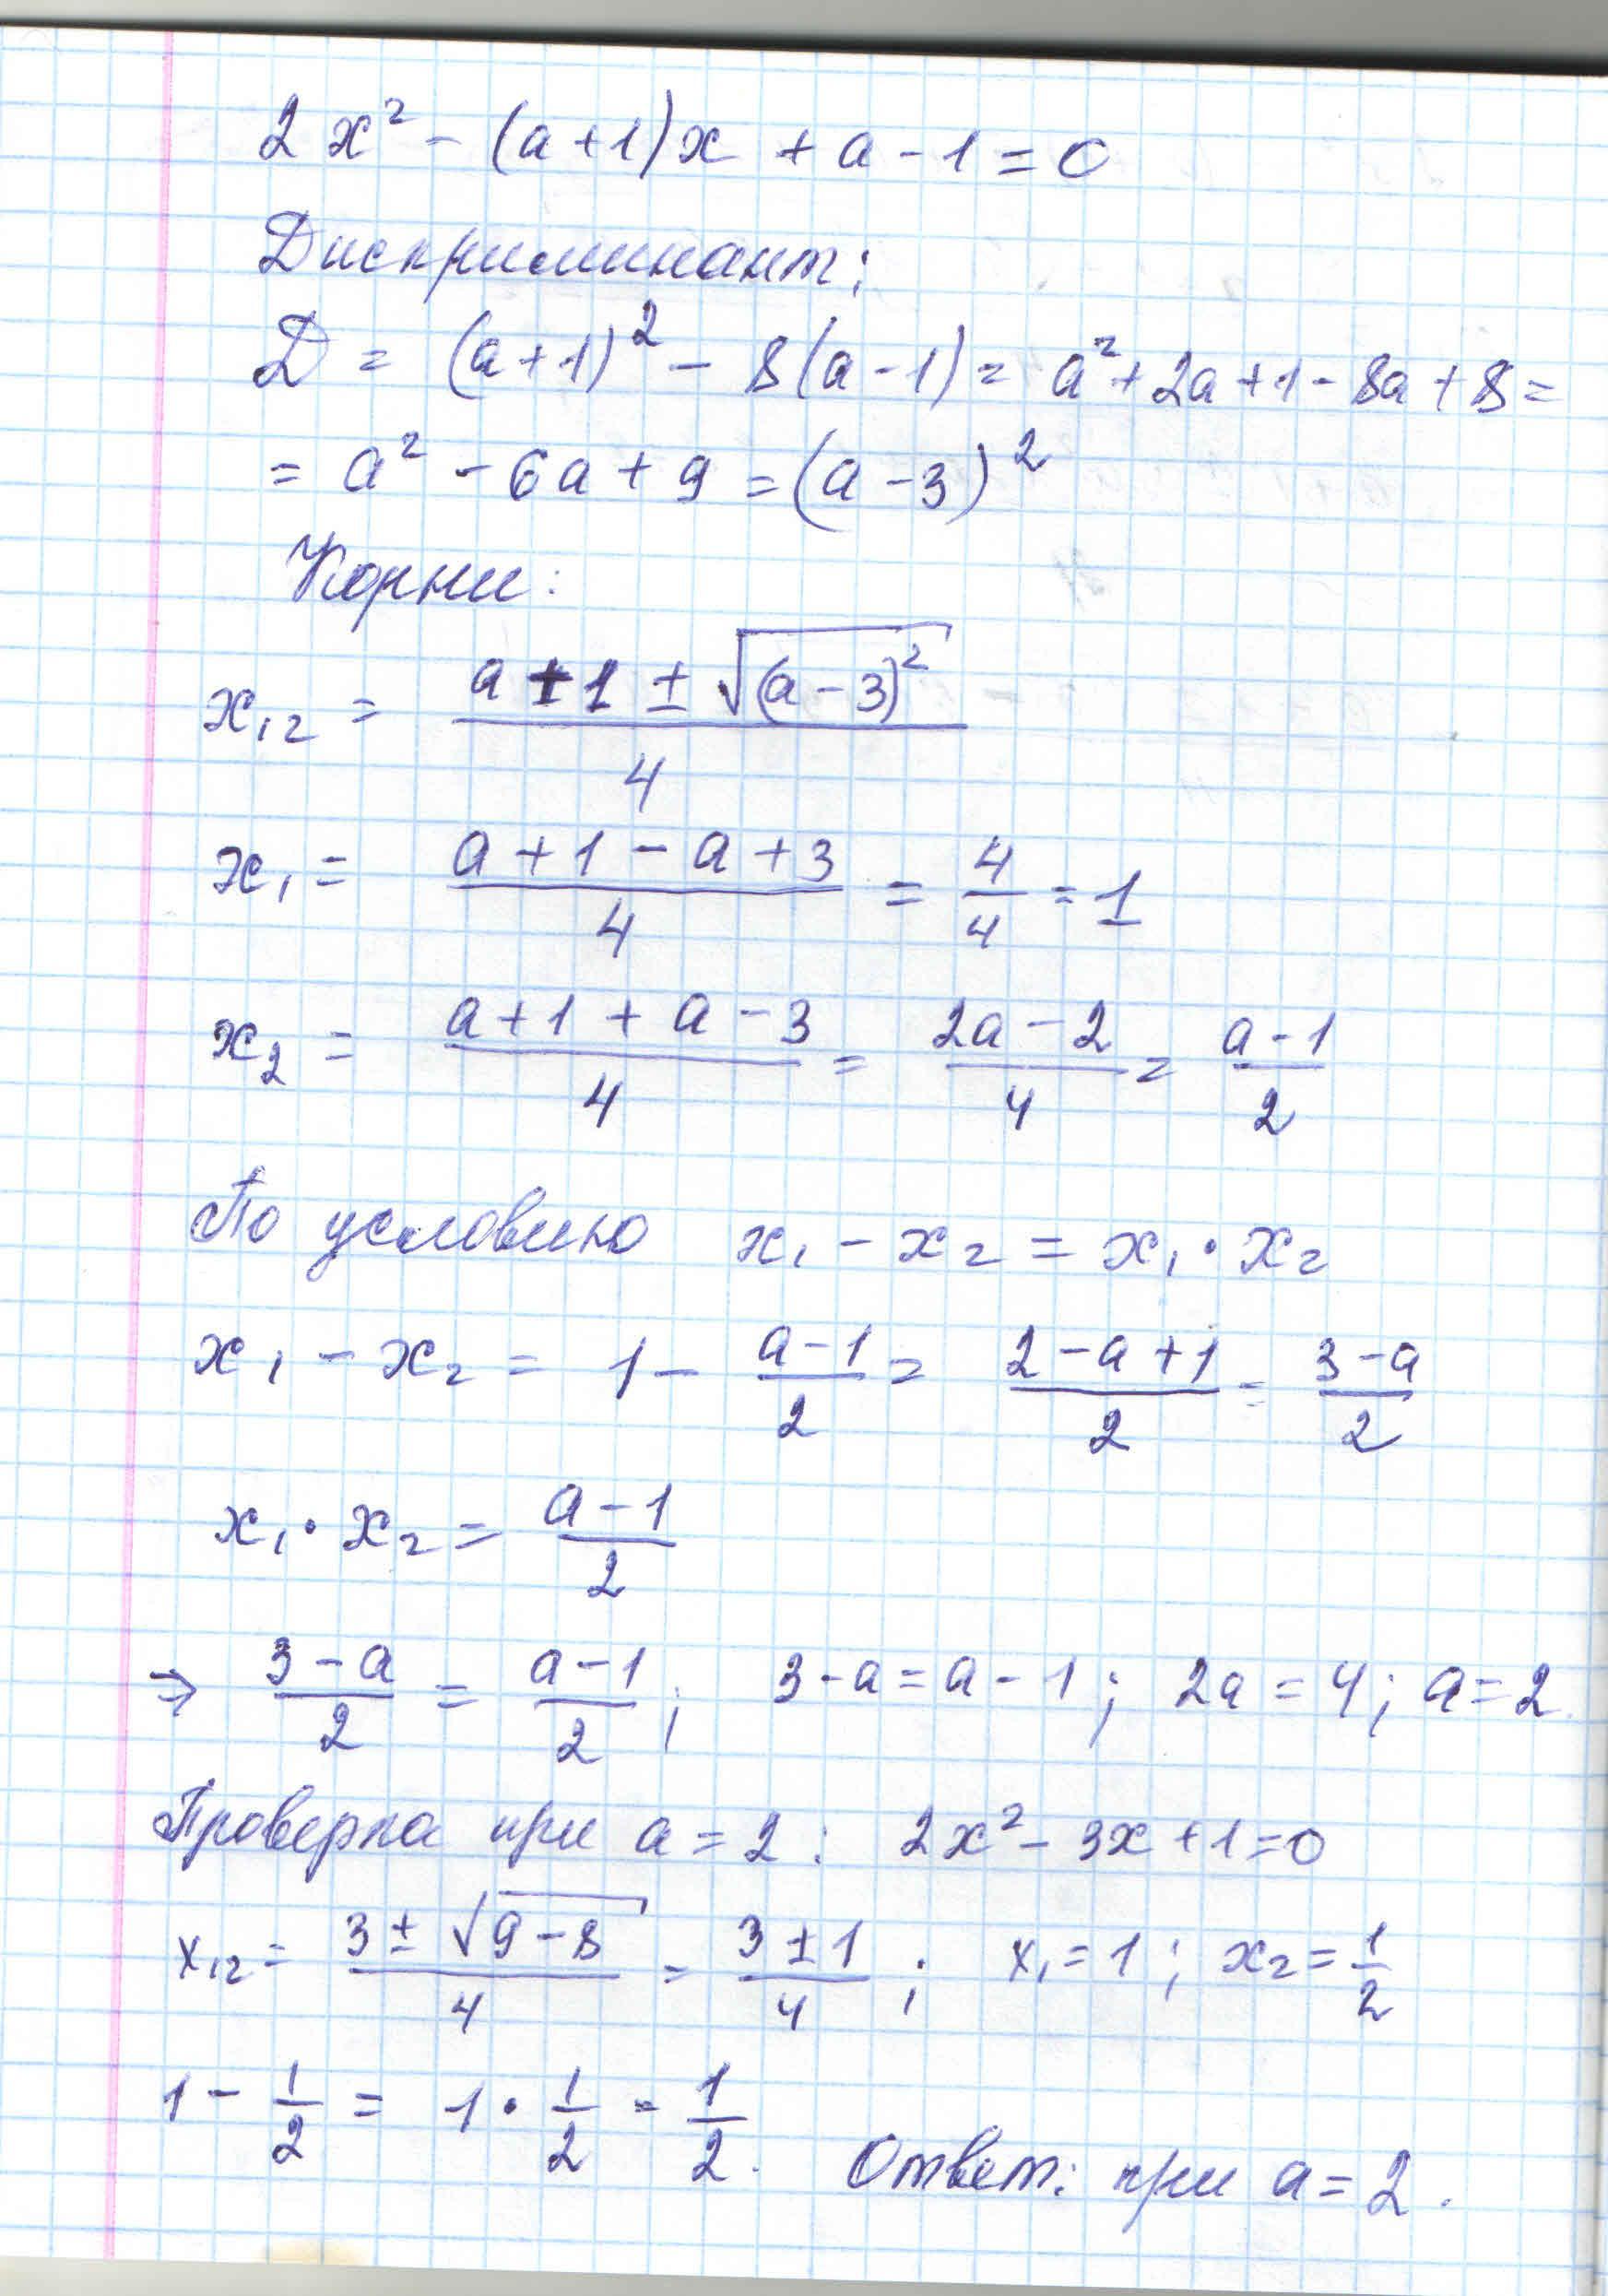 2x² - (a+1)x + a - 1 = 0
Дискриминант:
D = (a+1)² - 8(a-1) = a² + 2a + 1 - 8a + 8 =
= a² - 6a + 9 = (a-3)²
Корни:
x₁₂ = (a + 1 ± √(a-3)²)/4
x₁ = (a+1-a+3)/4 = 4/4 = 1
x₂ = (a+1+a-3)/4 = (2a-2)/4 = (a-1)/2
По условию x₁ - x₂ = x₁ · x₂
x₁ - x₂ = 1 - (a-1)/2 = (2-a+1)/2 = (3-a)/2
x₁ · x₂ = (a-1)/2
⇒ (3-a)/2 = (a-1)/2 ; 3-a = a-1 ; 2a = 4 ; a = 2
Проверка при a = 2 : 2x² - 3x + 1 = 0
x₁₂ = (3 ± √(9-8))/4 = (3 ± 1)/4 ; x₁ = 1 ; x₂ = 1/2
1 - 1/2 = 1 · 1/2 = 1/2. Ответ: при a = 2.